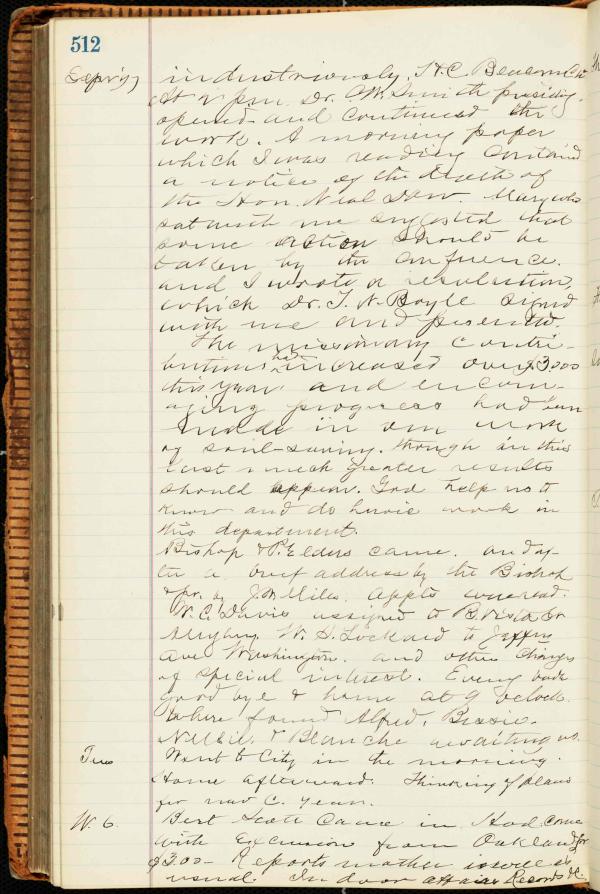 512
Sepr '97 industriously. H.C. Beacom
At 2 pm. Dr. C.W. Smith presiding.
opened and continued the
work. A morning paper
which I was reading contained
a notice of the death of
the Hon. Neal Dow. Mary who
sat with me suggested that
some action should be
taken by the conference.
and I wrote a resolution,
which Dr. T. N. Boyle signed
with me and presented.
The missionary contri-
butions has increased over $3000
this year. and encour-
aging progress had been
made in our work
of soul-saving. though in this
last much greater results
should appear. God help us to
know and do heroic work in
this department.
Bishop & P. Elders came. and af-
ter a brief address by the Bishop
& pr. by J.W. Miles. appts were read.
W. C. Davis assigned to B. Vista St
Allegheny. W. S. Lockard to Jefferson
Ave Washington. and other changes
of special interest. Every body
good bye & home at 9 oclock.
Where found Alfred, Bessie.
Nellie. & Blanche awaiting us.
Tue Went to City in the morning.
Home afterward. Thinking of plans
for new C. Year.
W. 6. Bert Scott came in. Had come
with Excursion from Oakland for
$3.00- Reports mother is well as
usual. In door affairs Records &c.